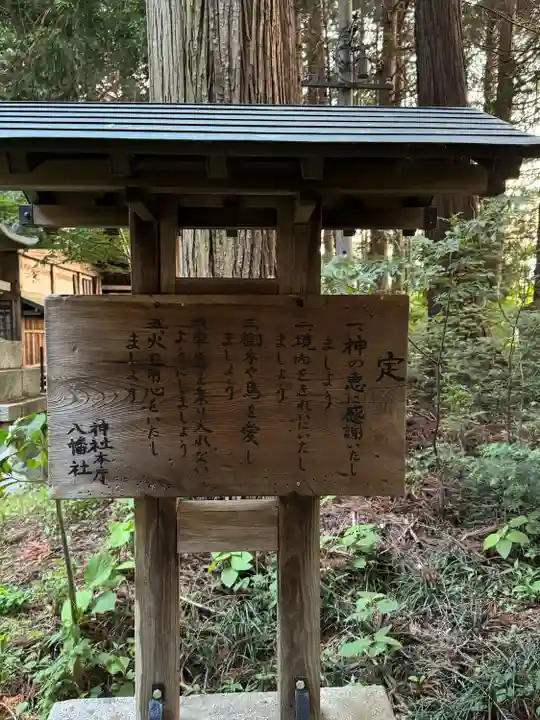 定
一、神の恵に感謝いたし
ましよう
二、境内をきれいにいたし
ましよう
三、樹木や鳥を愛し
ましよう
四、車馬を乗り入れない
ようにしましよう
五、火の用心をいたし
ましよう
神社本庁
八幡社